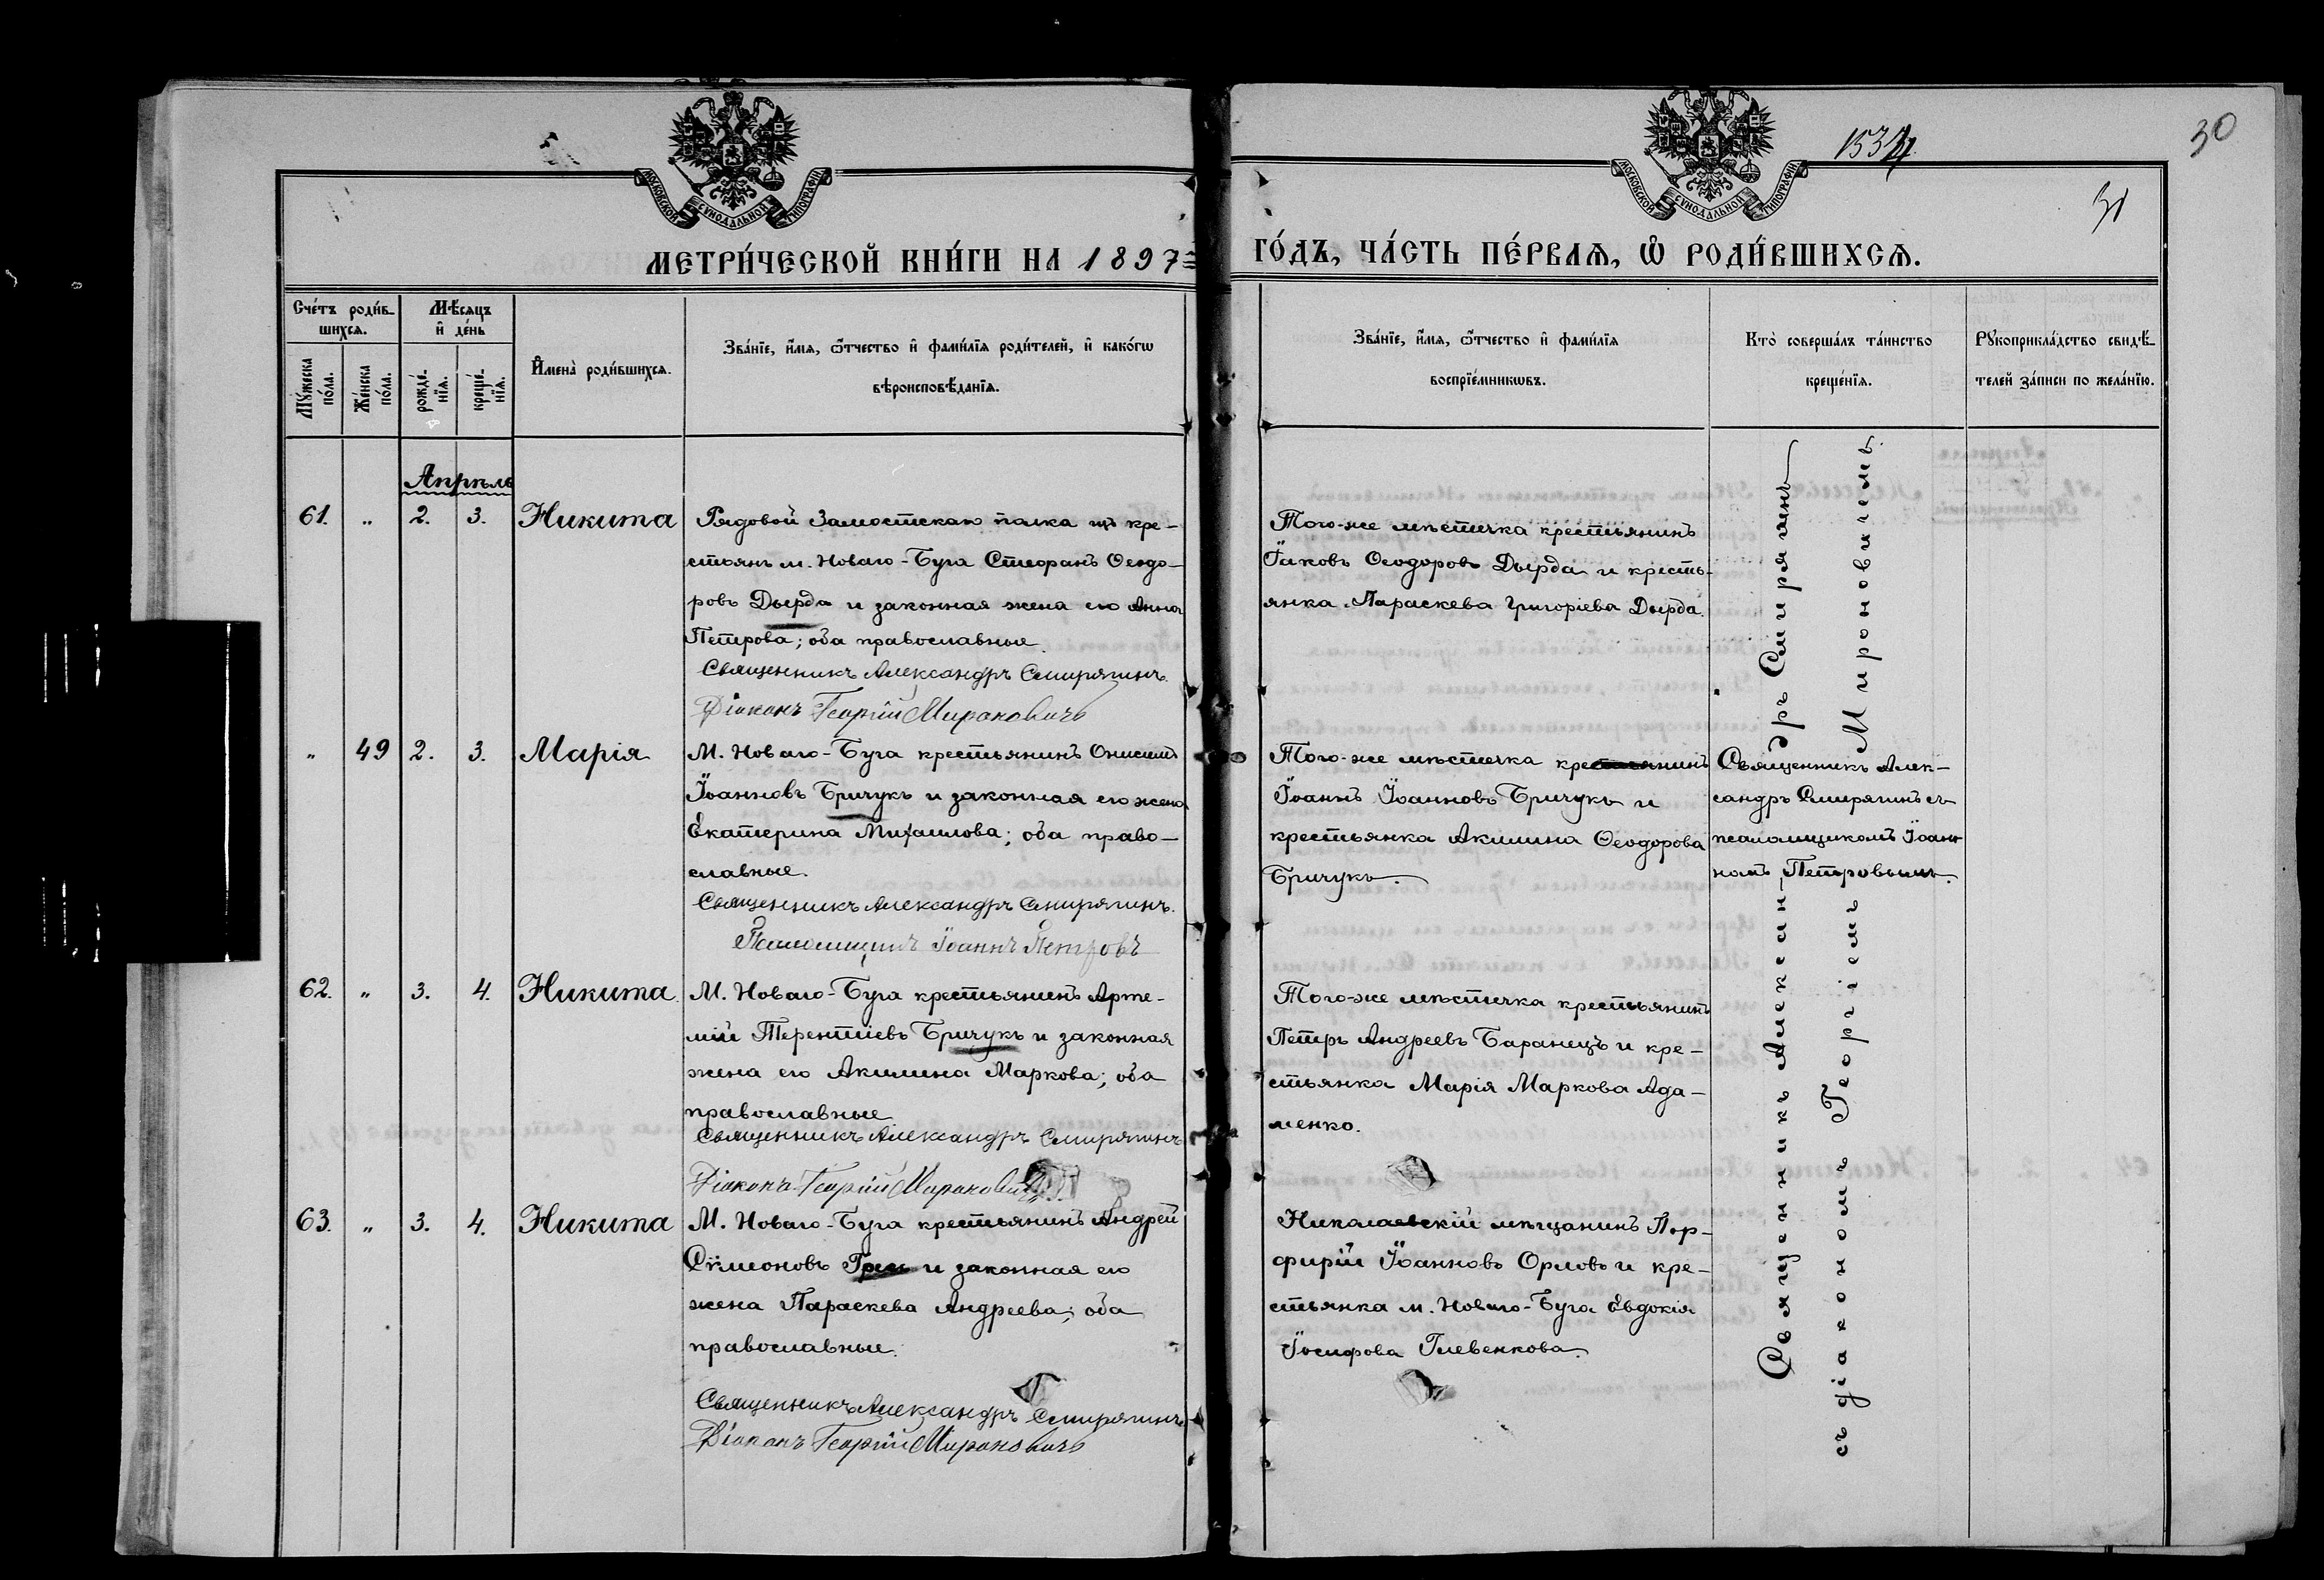 МОСКОВСКОЙ СѴНОДАЛЬНОЙ ТИПОГРАФІИ
МОСКОВСКОЙ СѴНОДАЛЬНОЙ ТИПОГРАФІИ
30
31
МЕТРИ́ЧЕСКОЙ КНИ́ГИ НА 1897
ГО́ДЪ, ЧА́СТЬ ПЕ́РВАѦ, Ѡ РОДИ́ВШИХСѦ.
Сче́тъ роди́в-
шихсѧ.
Мꙋ́жеска
по́ла.
Же́нска
по́ла.
Мѣ́сѧцъ
и҆ де́нь
рожде́-
нїѧ.
креще́-
нїѧ.
И҆мена̀ роди́вшихсѧ.
Зва́нїе, и҆́мѧ, ѻ҆́тчество и҆ фами́лїѧ роди́телей, и҆ како́гѡ
вѣроисповѣ́данїѧ.
Зва́нїе, и҆́мѧ, ѻ҆́тчество и҆ фами́лїѧ
воспрїе́мникѡвъ.
Кто̀ соверша́лъ та́инство
креще́нїѧ.
Рꙋкоприкла́дство свидѣ́-
телей за́писи по жела́нїю.
Апрѣль
61. " 2. 3. Никита
Рядовой Замостскаго полка изъ кре-
стьянъ м. Новаго-Буга Стефанъ Ѳеодо-
ровъ Дырда и законная жена его Анна
Петрова; оба православные.
Священникъ Александръ Смирягинъ.
Діаконъ Георгій Мироновичъ
Того-же мѣстечка крестьянинъ
Іаковъ Ѳеодоровъ Дырда и кресть-
янка Параскева Григоріева Дырда.
" 49 2. 3. Марія
М. Новаго-Буга крестьянинъ Онисимъ
Іоанновъ Бричукъ и законная его жена
Екатерина Михаилова; оба право-
славные.
Священникъ Александръ Смирягинъ.
Псаломщикъ Іоаннъ Петровъ
Того-же мѣстечка крестьянинъ
Іоаннъ Іоанновъ Бричукъ и
крестьянка Акилина Ѳеодорова
Бричукъ.
Священникъ Алек-
сандръ Смирягинъ съ
псаломщикомъ Іоан-
номъ Петровымъ.
62. " 3. 4. Никита.
М. Новаго-Буга крестьянинъ Арте-
мій Терентіевъ Бричукъ и законная
жена его Акилина Маркова; оба
православные
Священникъ Александръ Смирягинъ
Діаконъ Георгій Мироновичъ
Того-же мѣстечка крестьянинъ
Петръ Андреевъ Баранецъ и кре-
стьянка Марія Маркова Ада-
менко.
63. " 3. 4. Никита
М. Новаго-Буга крестьянинъ Андрей
Сѵмеоновъ и законная его
жена Параскева Андреева; оба
православные.
Священникъ Александръ Смирягинъ
Діаконъ Георгій Мироновичъ
Николаевскій мѣщанинъ Пор-
фирій Іоанновъ Орловъ и кре-
стьянка м. Новаго-Буга Евдокія
Іосифова Глевенкова.
Священникъ Александръ Смирягинъ
съ діакономъ Георгіемъ Мироновичемъ.